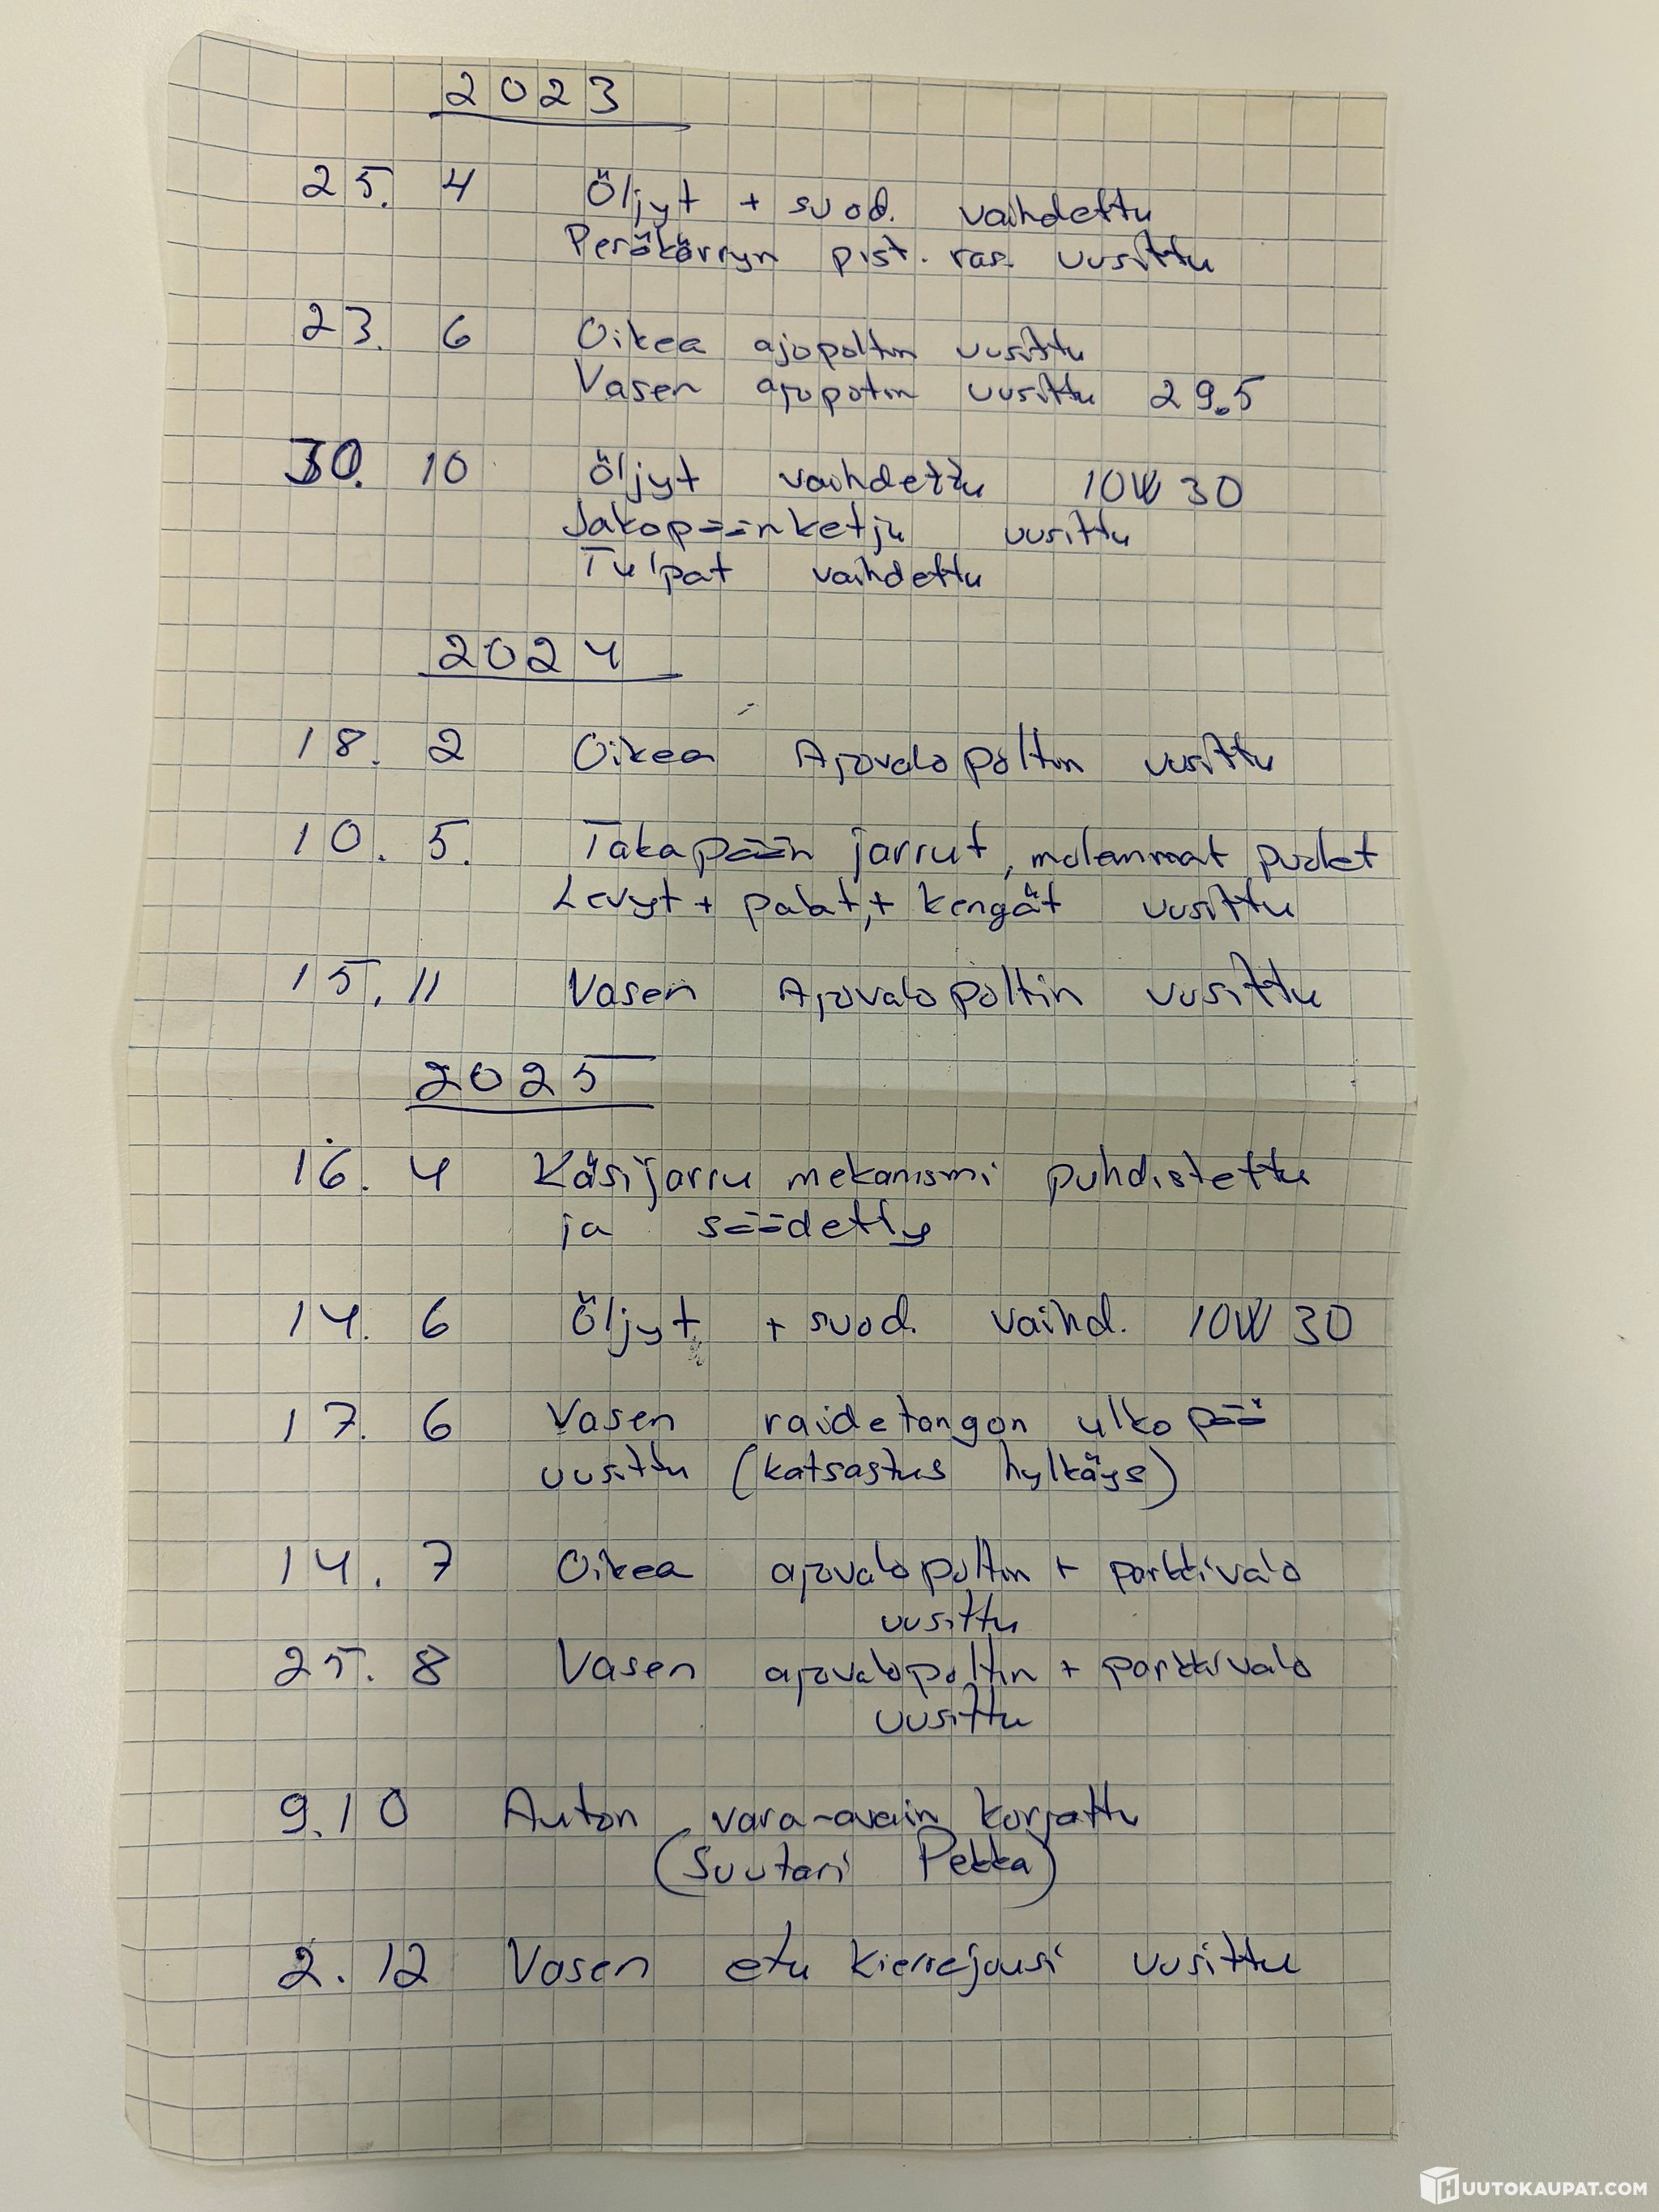 2023
25. 4 Öljyt + suod. vaihdettu
Peräkärryn pist. ras. uusittu
23. 6 Oikea ajopoltin uusittu
Vasen ajopotin uusittu 29.5
30. 10 Öljyt vaihdettu 10W30
Jakopäänketju uusittu
Tulpat vaihdettu
2024
18. 2 Oikea Ajovalopoltin uusittu
10. 5. Takapään jarrut, molemmat puolet
Levyt + palat, + kengät uusittu
15. 11 Vasen Ajovalopoltin uusittu
2025
16. 4 Käsijarru mekanismi puhdistettu
ja säädetty
14. 6 Öljyt + suod. vaihd. 10W30
17. 6 Vasen raidetangon ulkopää
uusittu (katsastus hylkäys)
14. 7 Oikea ajovalopoltin + parkkivalo
uusittu
25. 8 Vasen ajovalopoltin + parkkivalo
uusittu
9.10 Auton vara-avain korjattu
(Suutari Pekka)
2. 12 Vasen etu kierrejousi uusittu
HUUTOKAUPAT.COM